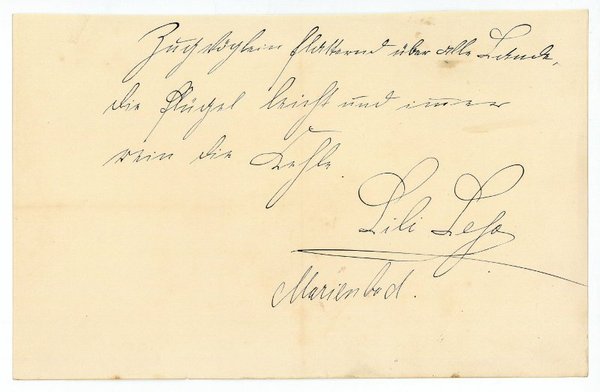 Zugvöglein flatternd über alle Lande,
die Flügel leicht und immer
rein die Kehle.
Lili Lejo
Marienbad.